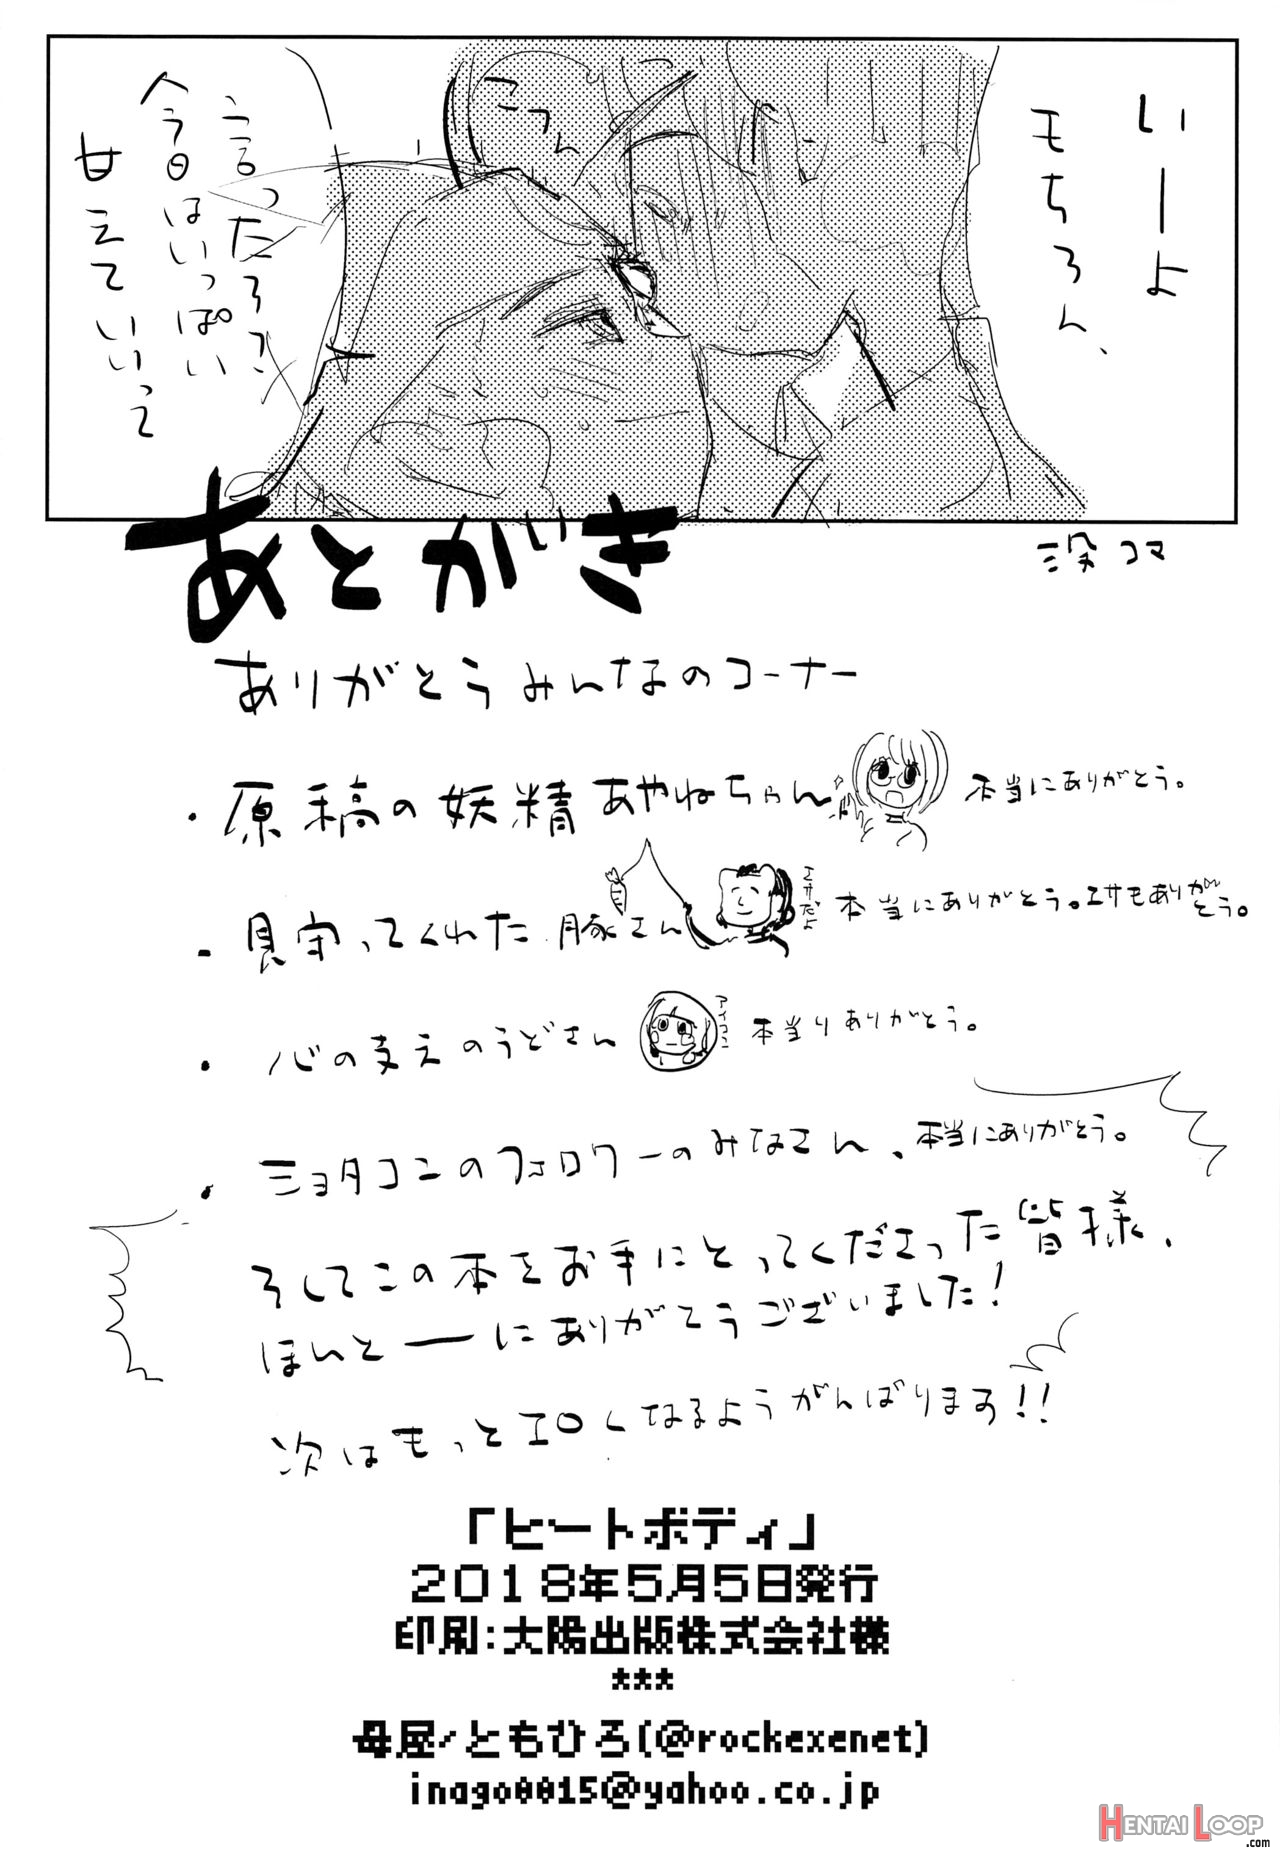 いーよ
もちろん、
こつん
言ったろ?
今日はいっぱい
甘えていいって
あとがき
没コマ
ありがとうみんなのコーナー
・原稿の妖精 あやねちゃん 本当にありがとう。
・見守ってくれた 豚さん エサだよ 本当にありがとう。エサもありがとう。
・心の支えのうどさん アイコン 本当りありがとう。
・ショタコンのフォロワーのみなさん、本当にありがとう。
そしてこの本をお手にとってくださった皆様、
ほんとーーにありがとうございました!
次はもっとエロくなるようがんばります!!
「ヒートボディ」
2018年5月5日発行
印刷:大陽出版株式会社様
***
母屋/ともひろ(@rockexenet)
inago0015@yahoo.co.jp
HENTAI LOOP
.com